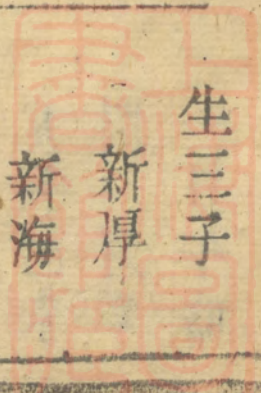 生三子
新厚
新海